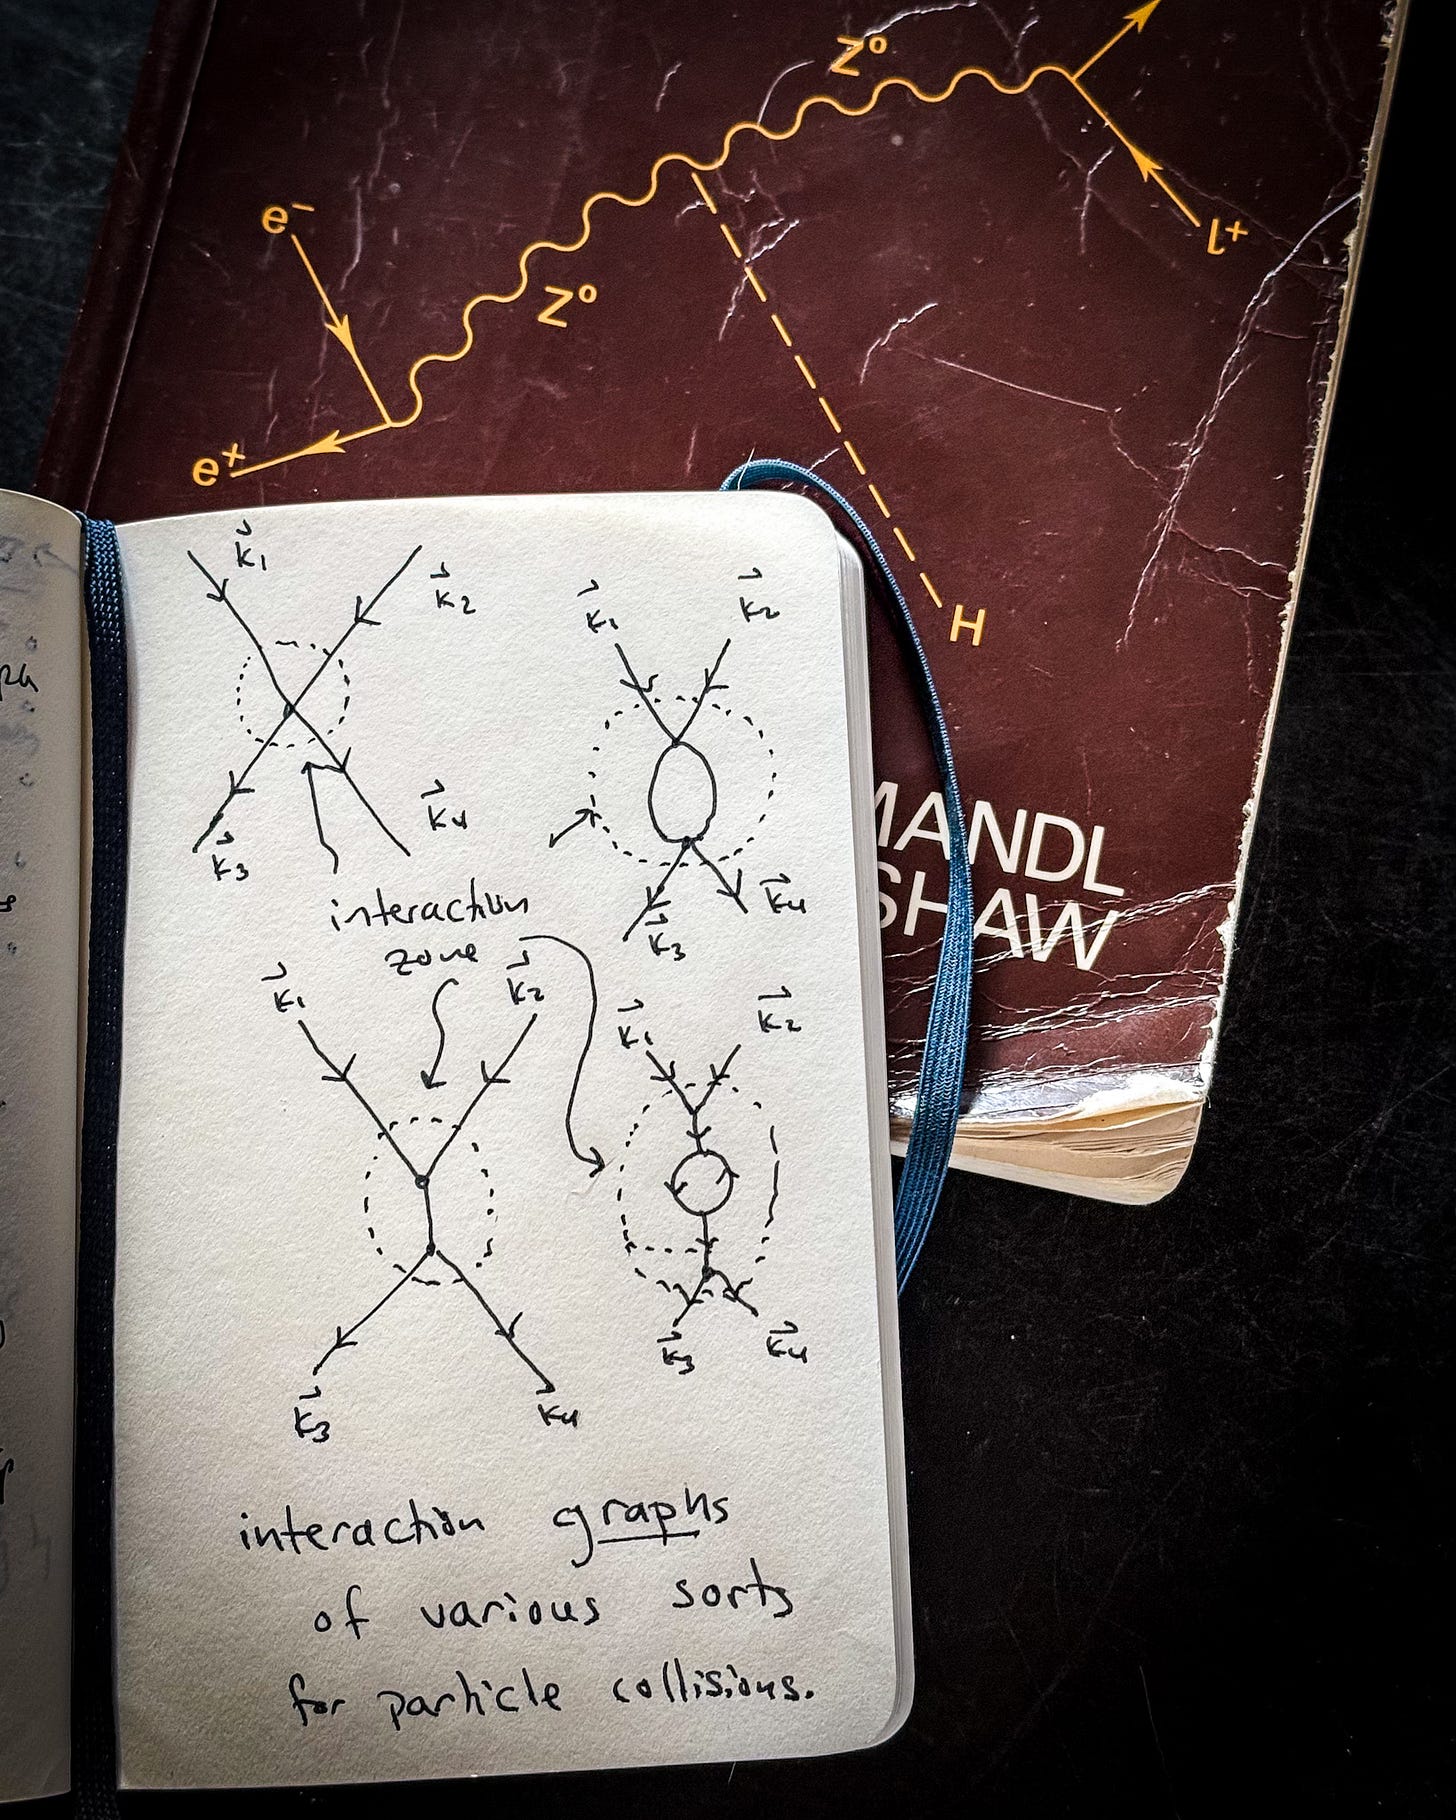 Z⁰
e⁻
l⁺
Z⁰
e⁺
H
MANDL
SHAW
k⃗₁
k⃗₂
k⃗₃
k⃗₄
k⃗₁
k⃗₂
k⃗₃
k⃗₄
interaction
zone
k⃗₁
k⃗₂
k⃗₃
k⃗₄
k⃗₁
k⃗₂
k⃗₃
k⃗₄
interaction graphs
of various sorts
for particle collisions.